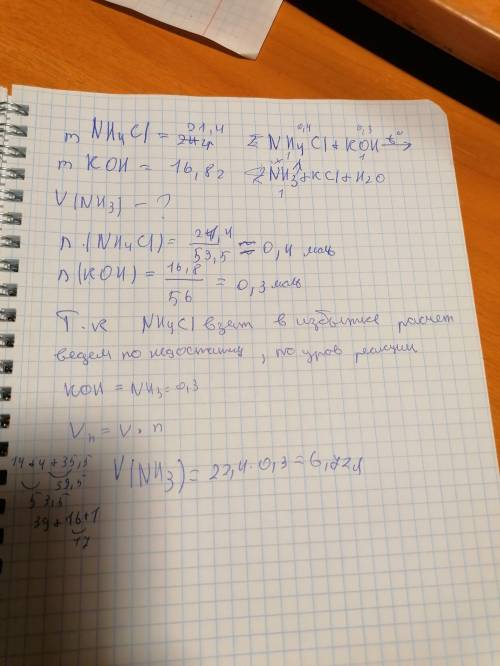 m NH4Cl = 21,4
m KOH = 16,8г
V(NH3) - ?
0,4 0,3
2 NH4Cl + KOH t° →
1 1
x
2NH3 + KCl + H2O
1
n (NH4Cl) = 21,4 / 53,5 ≈ 0,4 моль
n (KOH) = 16,8 / 56 = 0,3 моль
Т.к NH4Cl взят в избытке расчет
ведем по недостатку, по уров реакции
KOH = NH3 = 0,3
Vn = V · n
V(NH3) = 22,4 · 0,3 = 6,72л
14 + 4 + 35,5
39,5
53,5
39 + 16 + 1
17